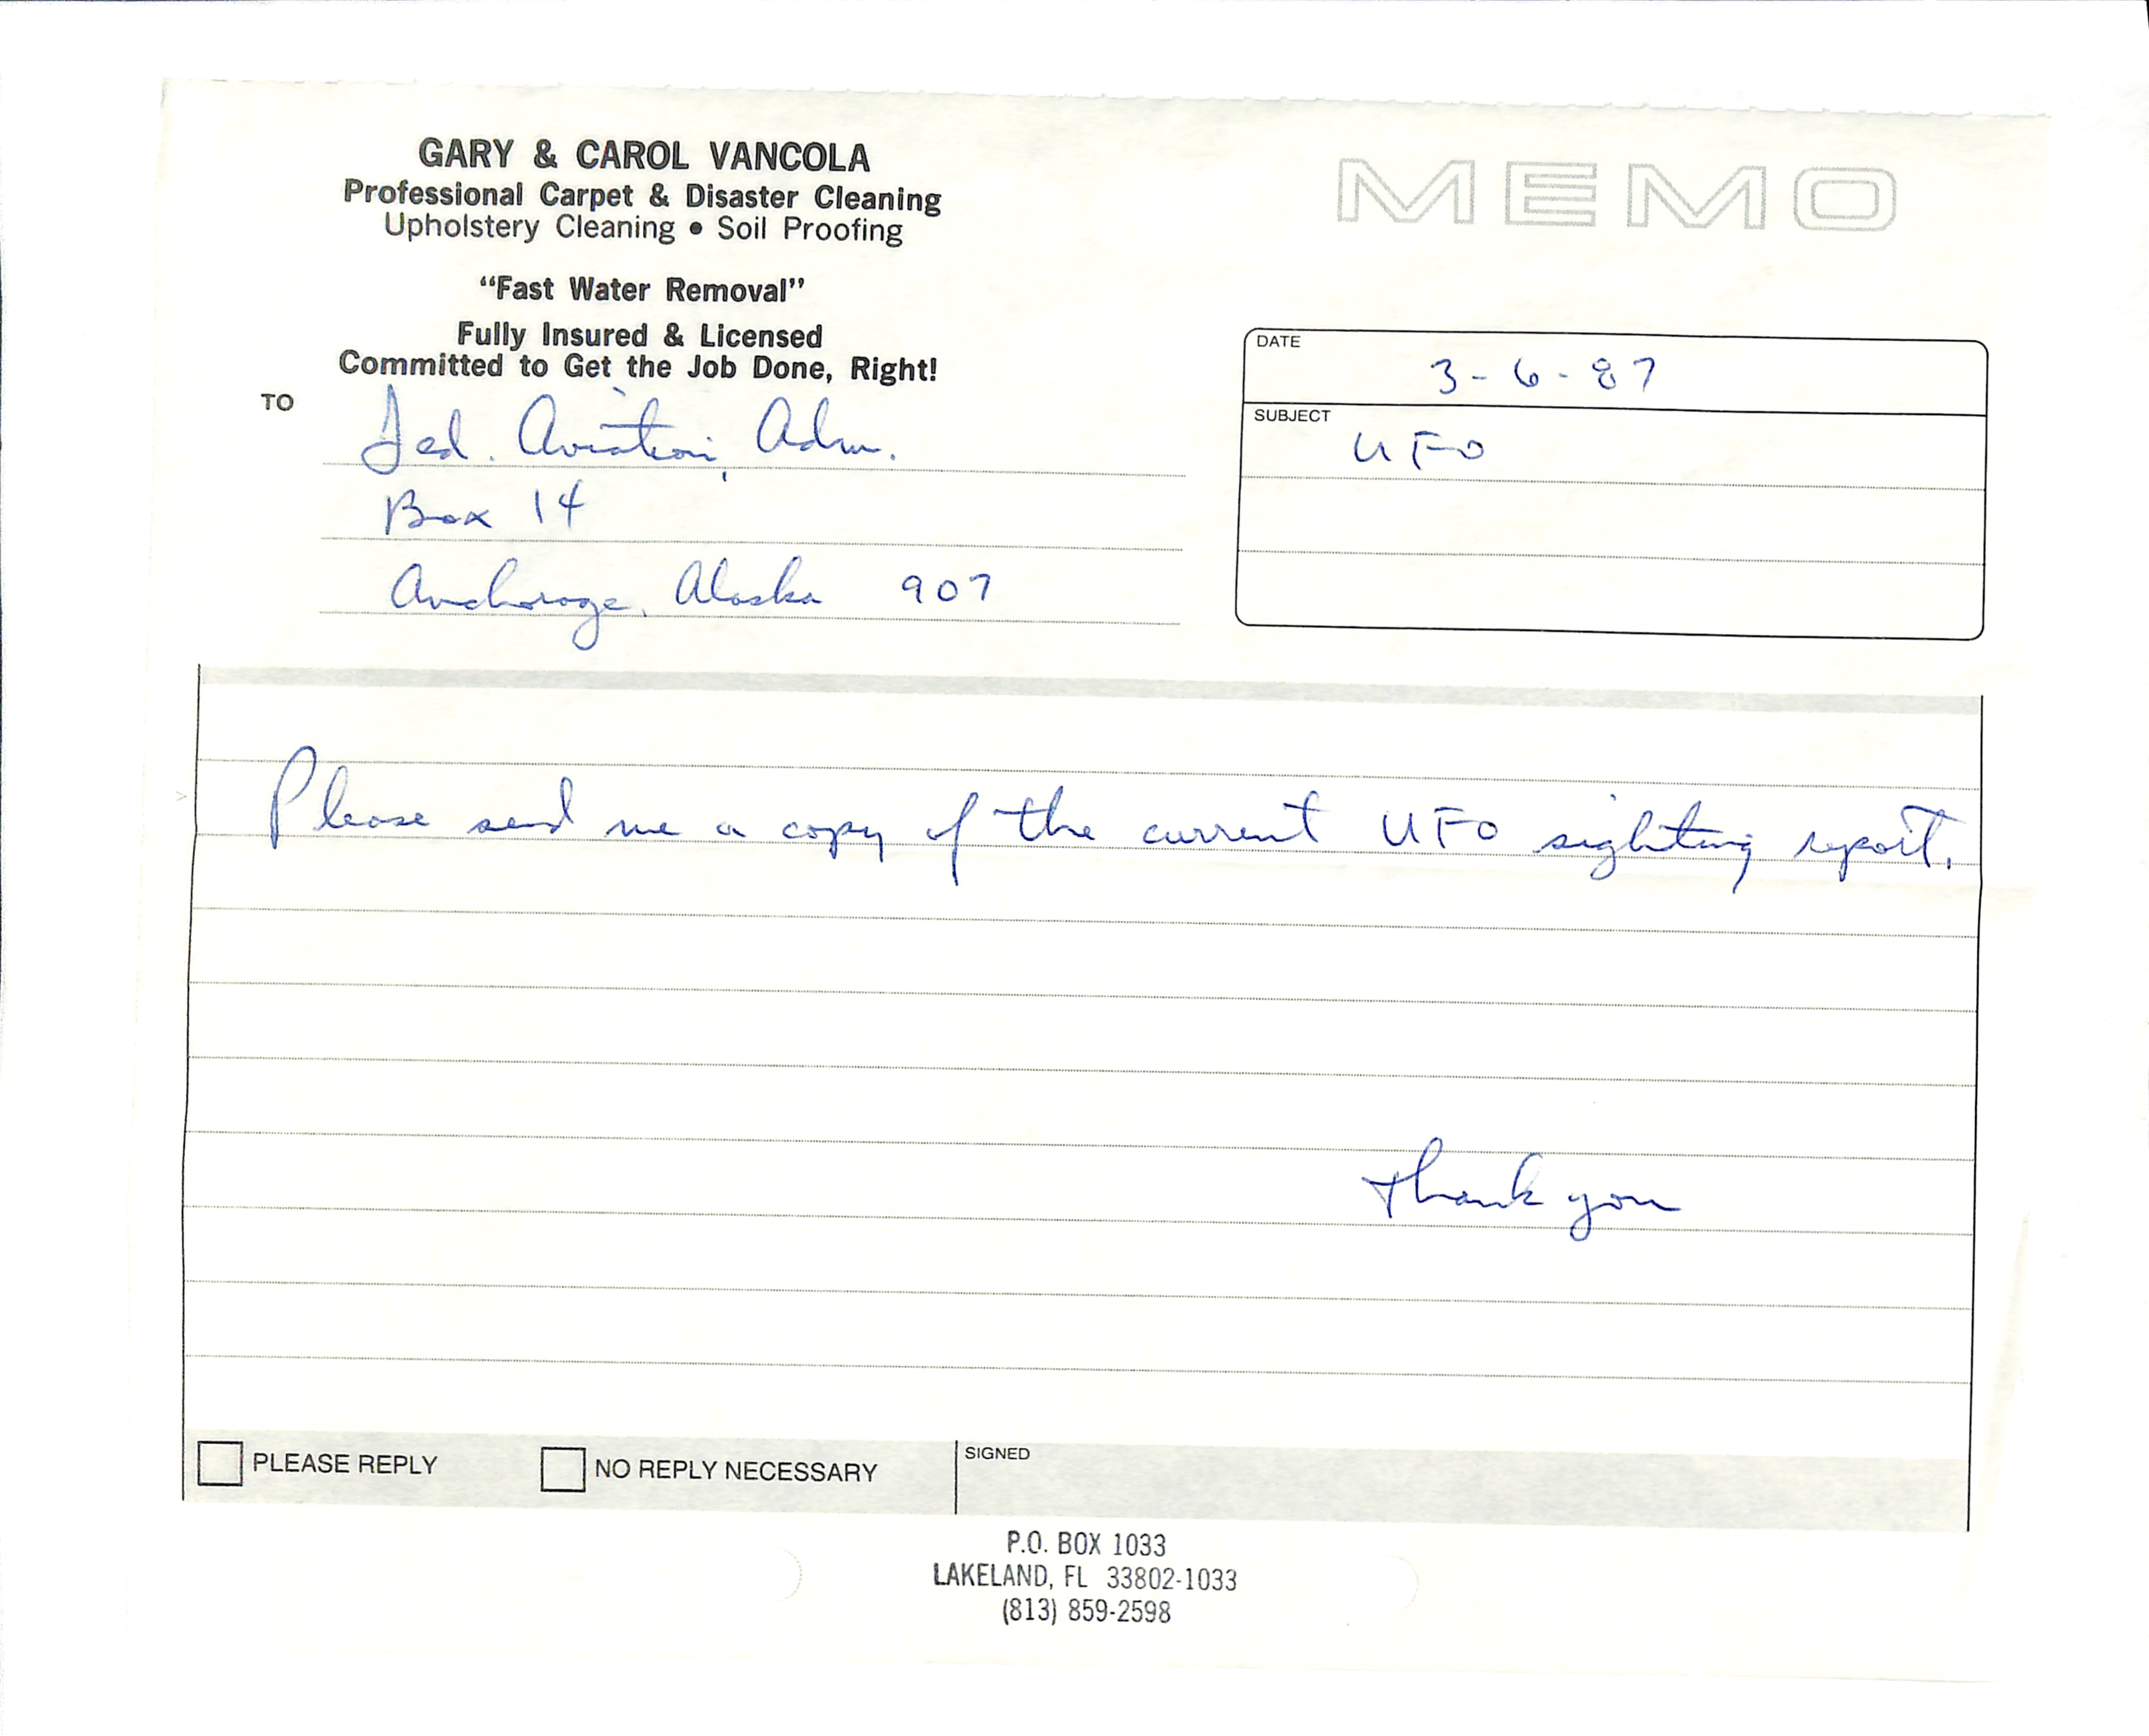 GARY & CAROL VANCOLA
Professional Carpet & Disaster Cleaning
Upholstery Cleaning • Soil Proofing
“Fast Water Removal”
Fully Insured & Licensed
Committed to Get the Job Done, Right!
MEMO
DATE 3-6-87
SUBJECT UFO
TO Fed. Aviation Adm.
Box 14
Anchorage, Alaska 907
Please send me a copy of the current UFO sighting report.
Thank you
PLEASE REPLY NO REPLY NECESSARY SIGNED
P.O. BOX 1033
LAKELAND, FL 33802-1033
(813) 859-2598